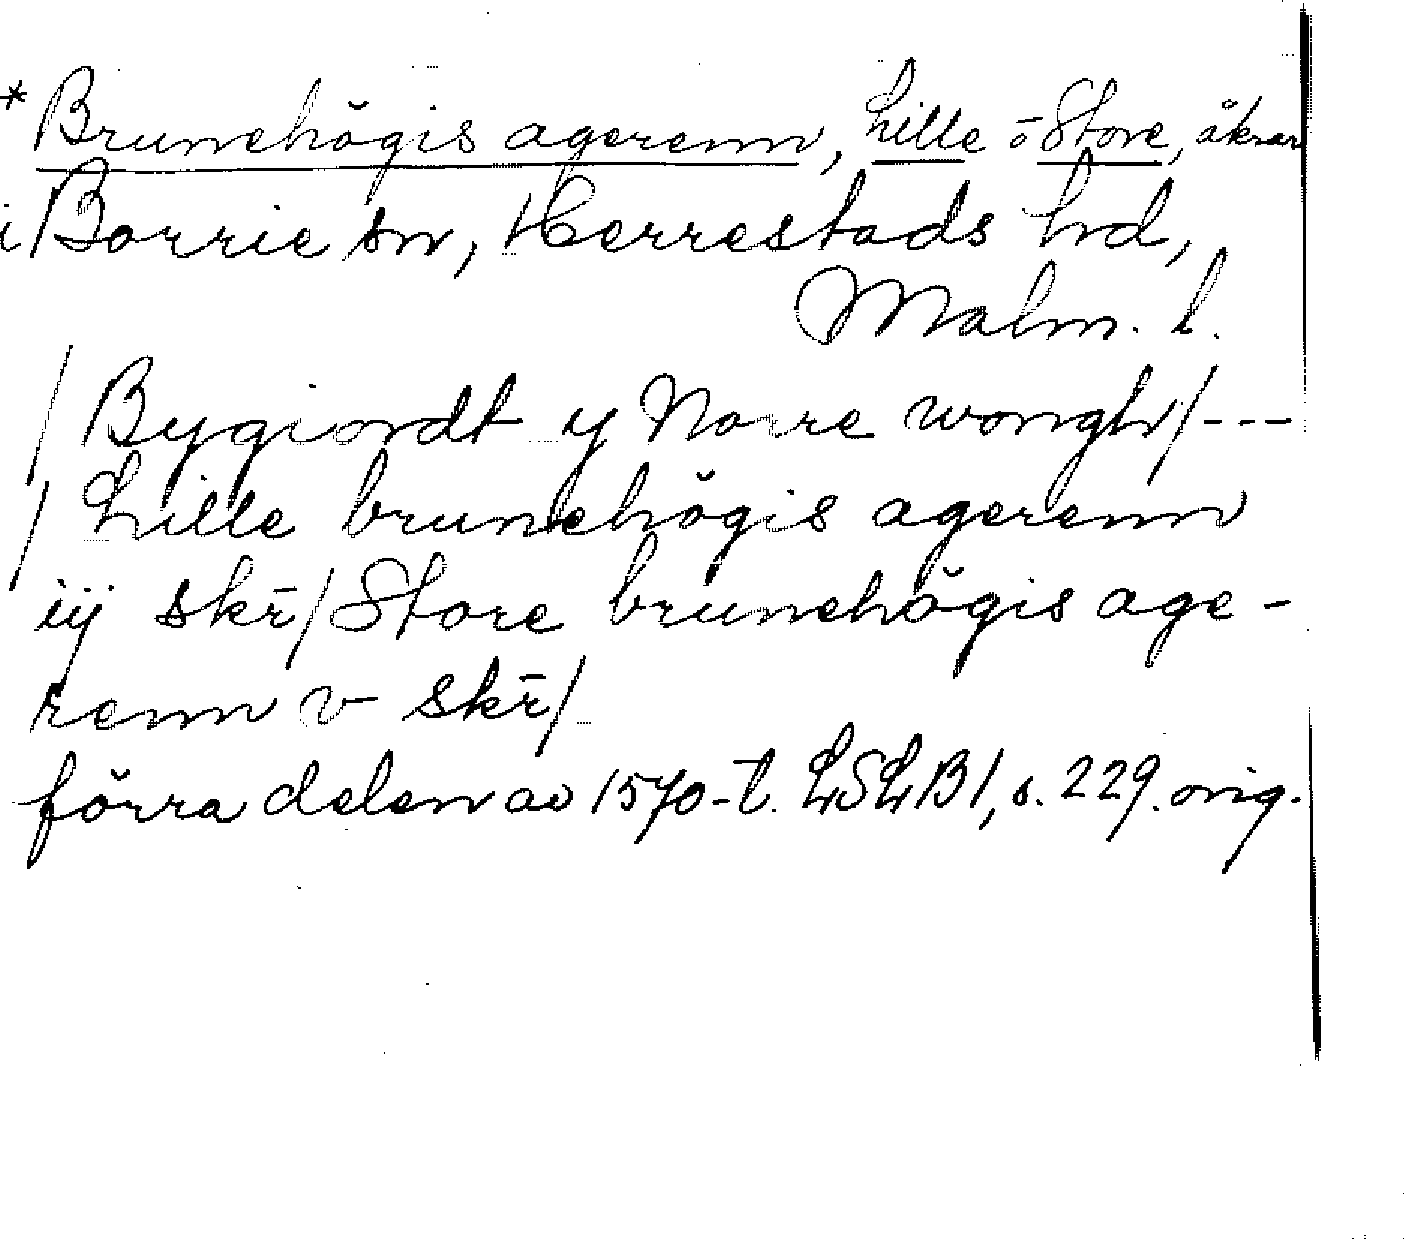 *Brunehögis agerenn, Lille o Store, åkrar
i Borrie sn, Herrestads hd,
Malm. l.
/ Bygiordt y Norre wongh/---
/ Lille brunehögis agerenn
iij skr̄/ Store brunehögis age-
renn v skr̄/
förra delen av 1570-t. LSLB1, s. 229. orig.